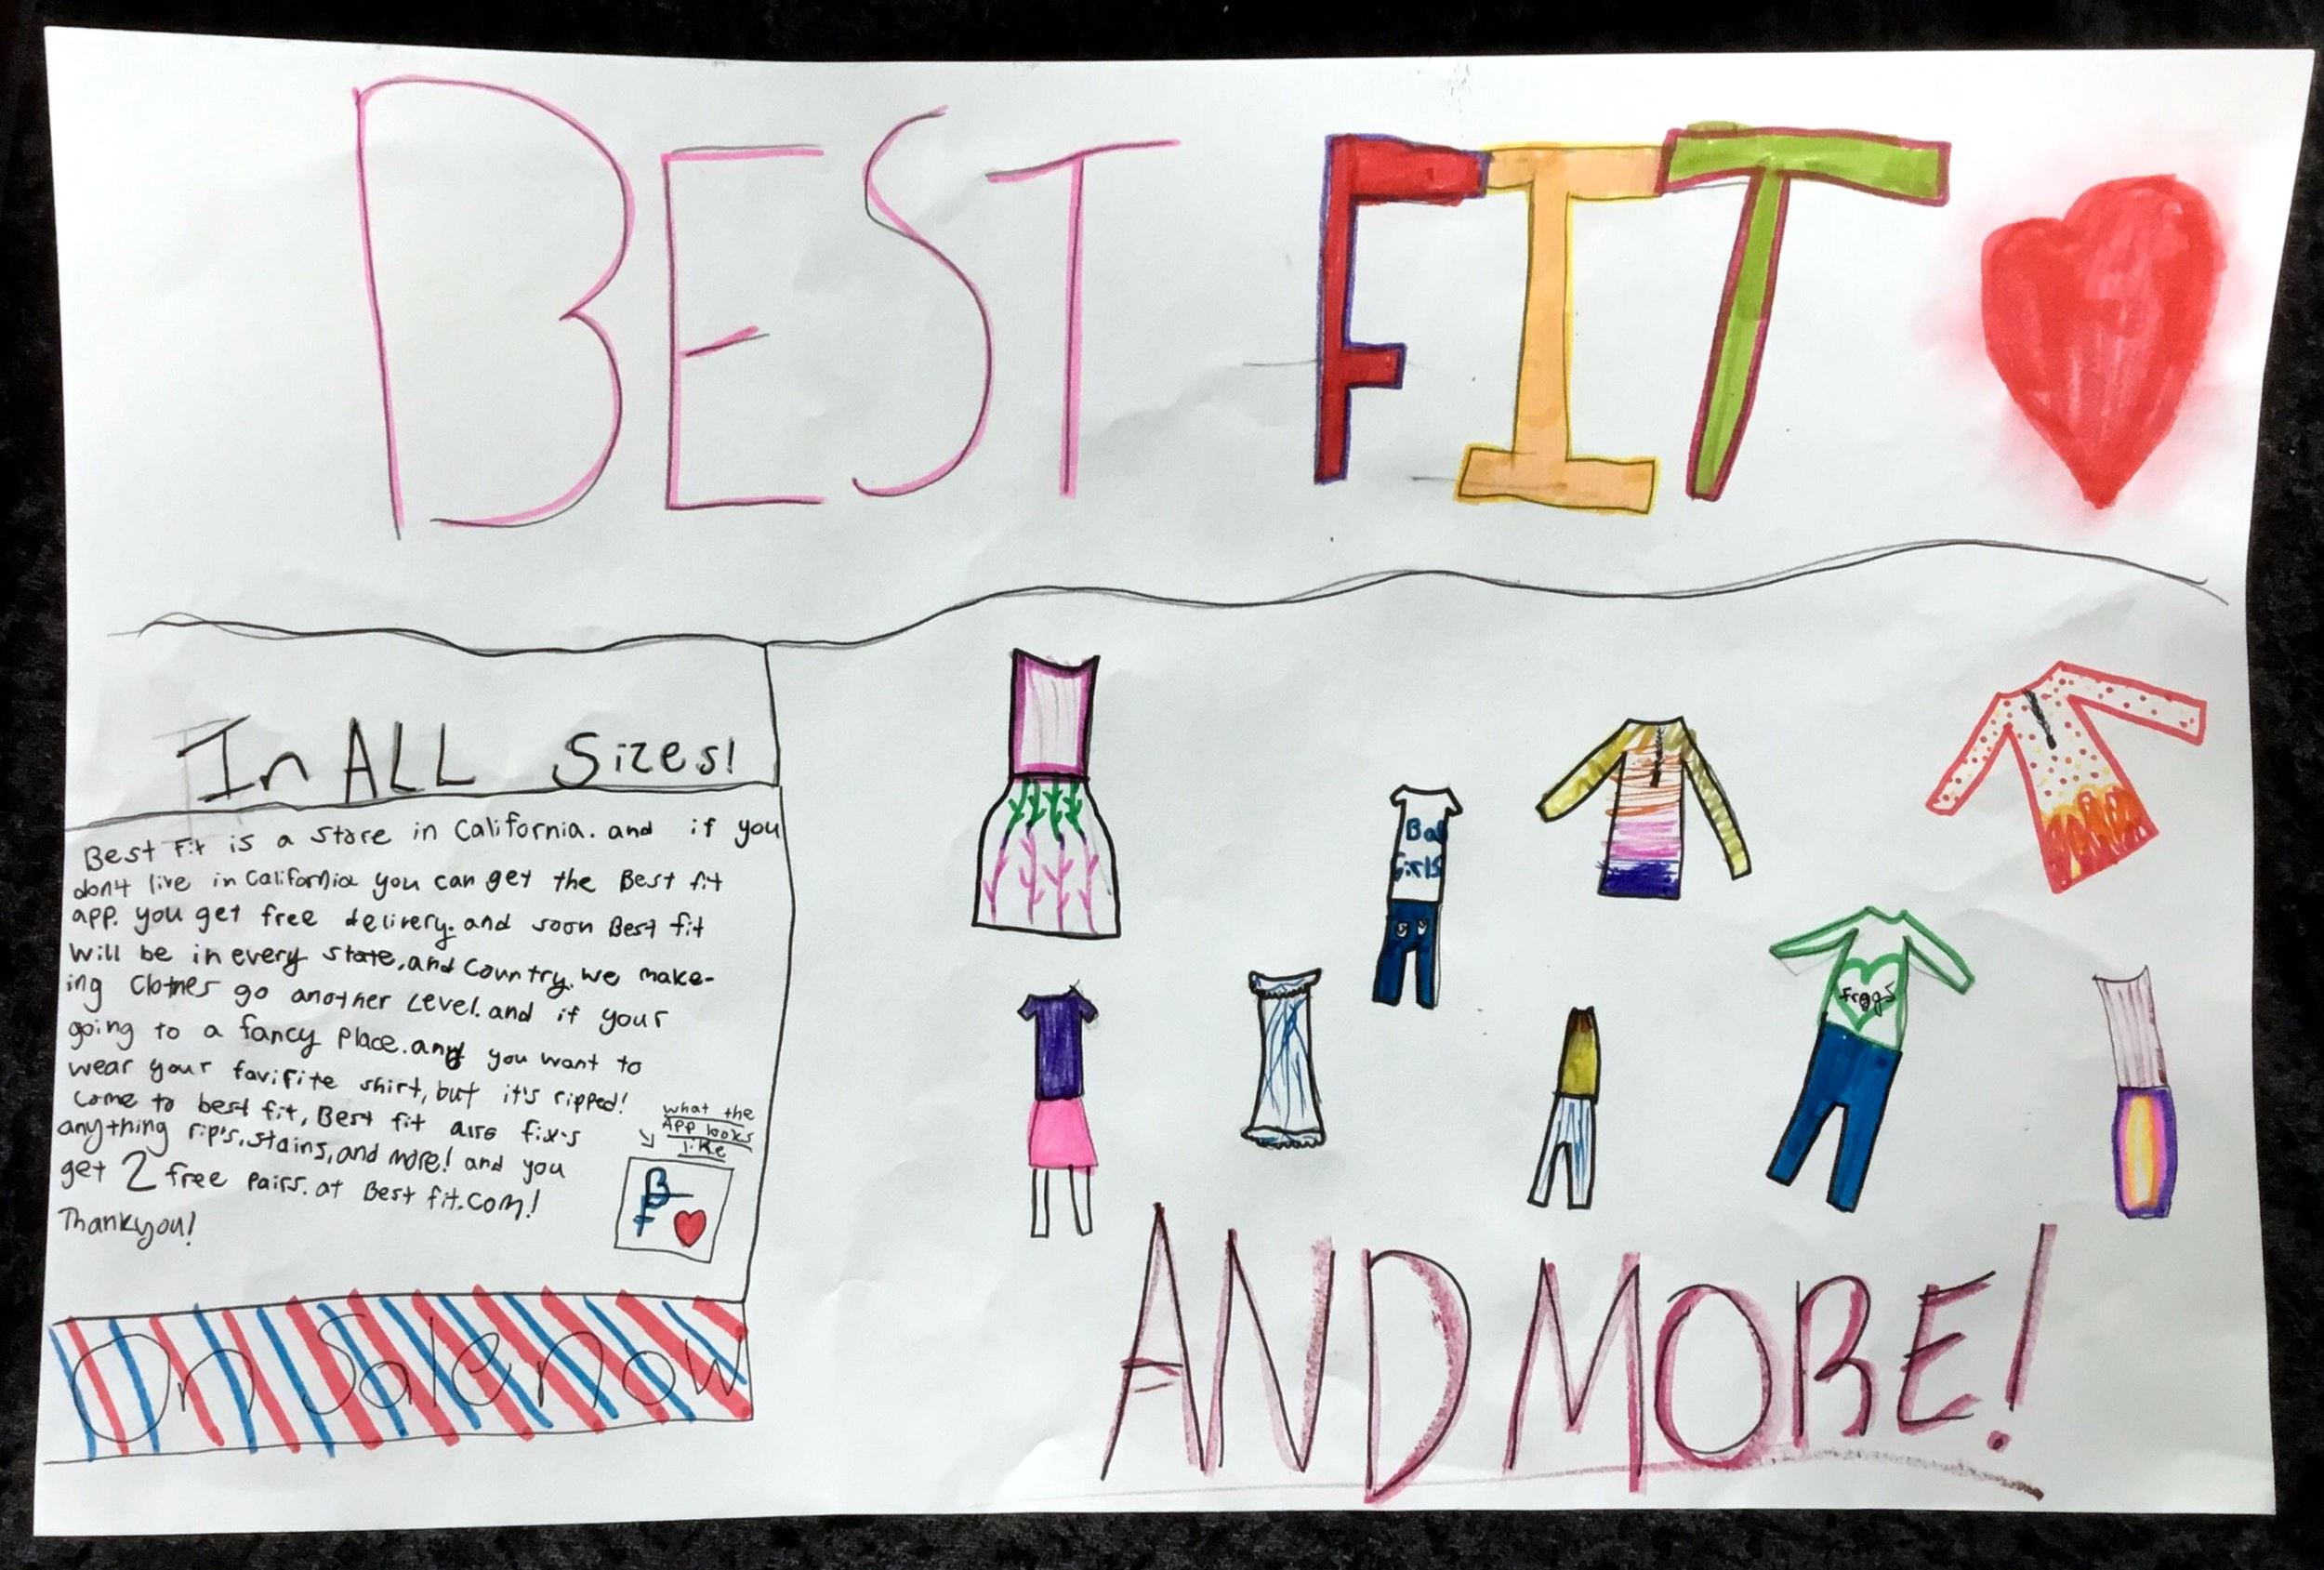 BEST FIT
In ALL Sizes!
Best Fit is a store in California. and if you
don't live in California you can get the Best fit
app. you get free delivery. and soon Best fit
will be in every state, and Country. we make-
ing Clothes go another Level. and if your
going to a fancy place. and you want to
wear your favifite shirt, but it's ripped!
come to best fit, Best fit also fix's
anything rip's, stains, and more! and you
get 2 free pairs. at Best fit.com!
Thankyou!
what the
APP looks
like
BF
On Sale now
Bad
Girls
frogs
AND MORE!